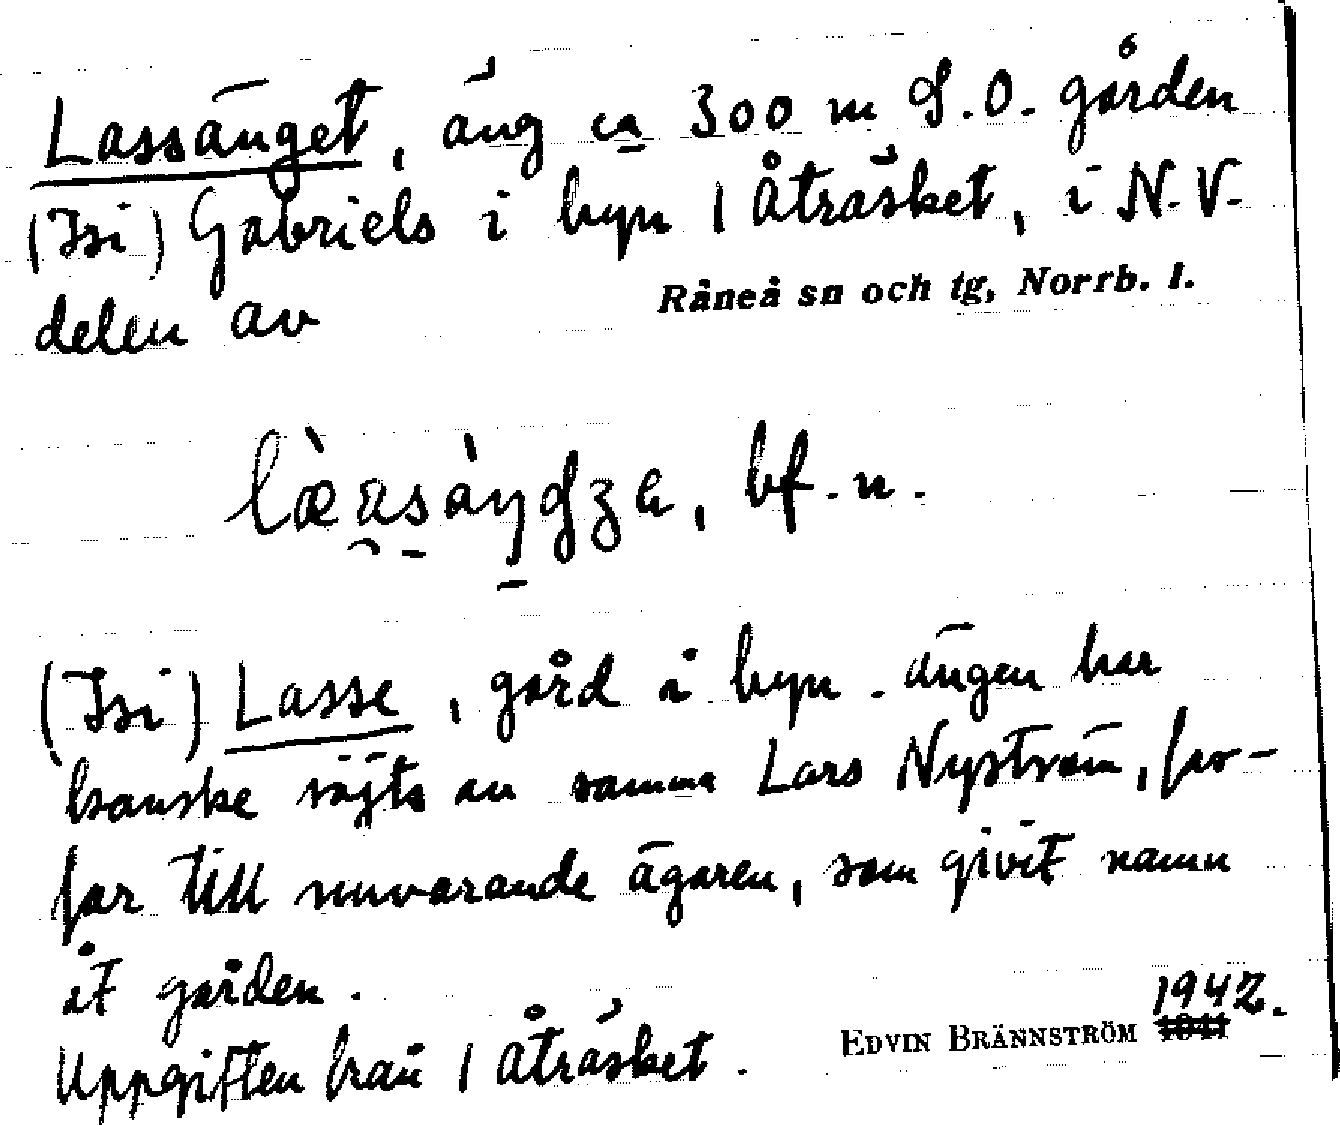 Lassänget, äng ca 300 m S.O. gården
(Isi) Gabriels i byn 1 Åträsket, i N.V.
delen av Råneå sn och tg, Norrb. l.
bf. n.
(Isi) Lasse, gård i byn. Ängen har
kanske röjts av samma Lars Nyström, far-
far till nuvarande ägaren, som givit namn
åt gården.
Uppgiften från 1 Åträsket. EDVIN BRÄNNSTRÖM 1942.